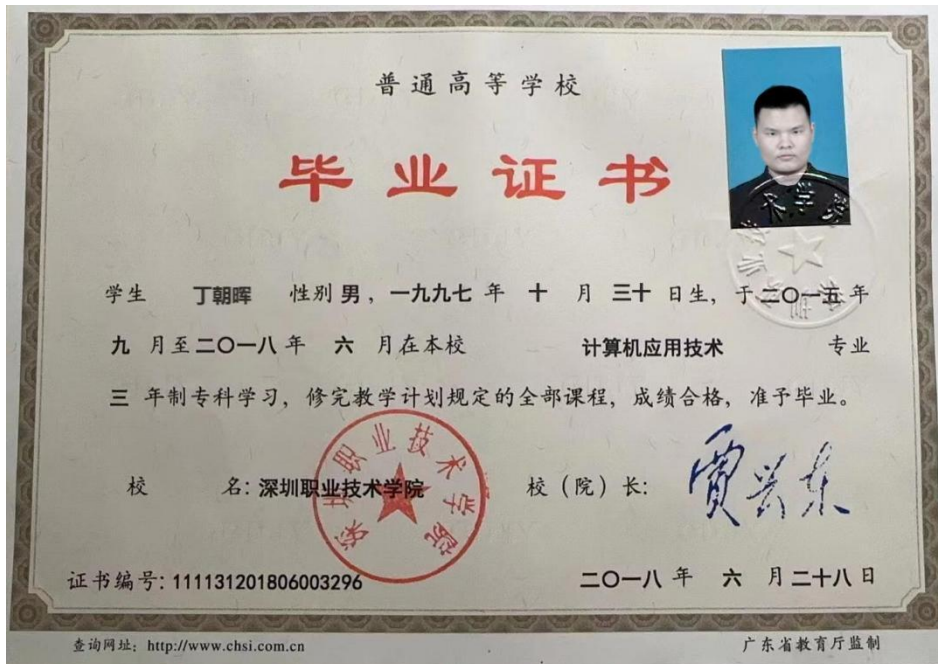 普通高等学校
毕业证书
学生 丁朝晖 性别 男，一九九七 年 十 月 三十 日生，于 二〇一五 年
九 月至 二〇一八 年 六 月在本校 计算机应用技术 专业
三 年制专科学习，修完教学计划规定的全部课程，成绩合格，准予毕业。
深圳职业技术学院
校 名：深圳职业技术学院 校（院）长：贾兴东
证书编号：111131201806003296 二〇一八 年 六 月 二十八 日
查询网址：http://www.chsi.com.cn 广东省教育厅监制